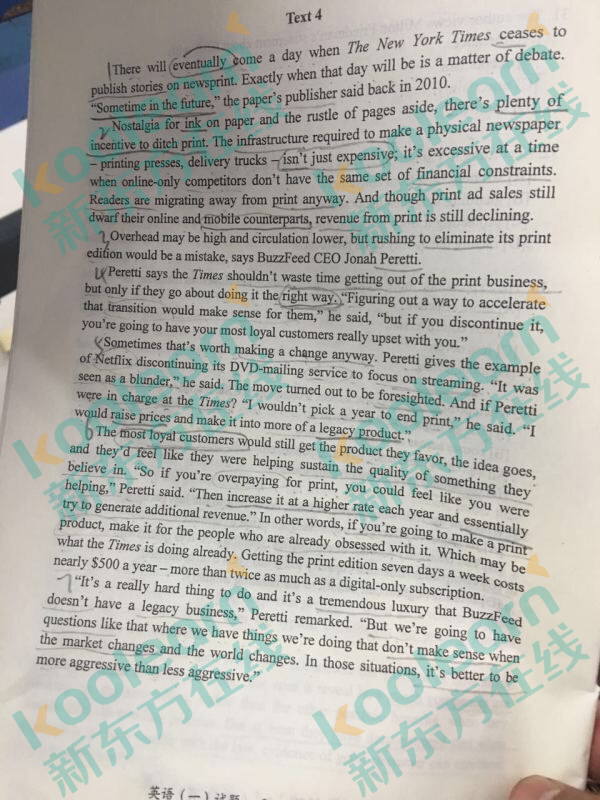 Text 4
There will eventually come a day when The New York Times ceases to
publish stories on newsprint. Exactly when that day will be is a matter of debate.
“Sometime in the future,” the paper’s publisher said back in 2010.
Nostalgia for ink on paper and the rustle of pages aside, there’s plenty of
incentive to ditch print. The infrastructure required to make a physical newspaper
– printing presses, delivery trucks – isn’t just expensive; it’s excessive at a time
when online-only competitors don’t have the same set of financial constraints.
Readers are migrating away from print anyway. And though print ad sales still
dwarf their online and mobile counterparts, revenue from print is still declining.
Overhead may be high and circulation lower, but rushing to eliminate its print
edition would be a mistake, says BuzzFeed CEO Jonah Peretti.
Peretti says the Times shouldn’t waste time getting out of the print business,
but only if they go about doing it the right way. “Figuring out a way to accelerate
that transition would make sense for them,” he said, “but if you discontinue it,
you’re going to have your most loyal customers really upset with you.”
Sometimes that’s worth making a change anyway. Peretti gives the example
of Netflix discontinuing its DVD-mailing service to focus on streaming. “It was
seen as a blunder,” he said. The move turned out to be foresighted. And if Peretti
were in charge at the Times? “I wouldn’t pick a year to end print,” he said. “I
would raise prices and make it into more of a legacy product.”
The most loyal customers would still get the product they favor, the idea goes,
and they’d feel like they were helping sustain the quality of something they
believe in. “So if you’re overpaying for print, you could feel like you were
helping,” Peretti said. “Then increase it at a higher rate each year and essentially
try to generate additional revenue.” In other words, if you’re going to make a print
product, make it for the people who are already obsessed with it. Which may be
what the Times is doing already. Getting the print edition seven days a week costs
nearly $500 a year – more than twice as much as a digital-only subscription.
“It’s a really hard thing to do and it’s a tremendous luxury that BuzzFeed
doesn’t have a legacy business,” Peretti remarked. “But we’re going to have
questions like that where we have things we’re doing that don’t make sense when
the market changes and the world changes. In those situations, it’s better to be
more aggressive than less aggressive.”
英语（一）试题
koolearn
新东方在线
koolearn
新东方在线
koolearn
新东方在线
koolearn
新东方在线
koolearn
新东方在线
koolearn
新东方在线